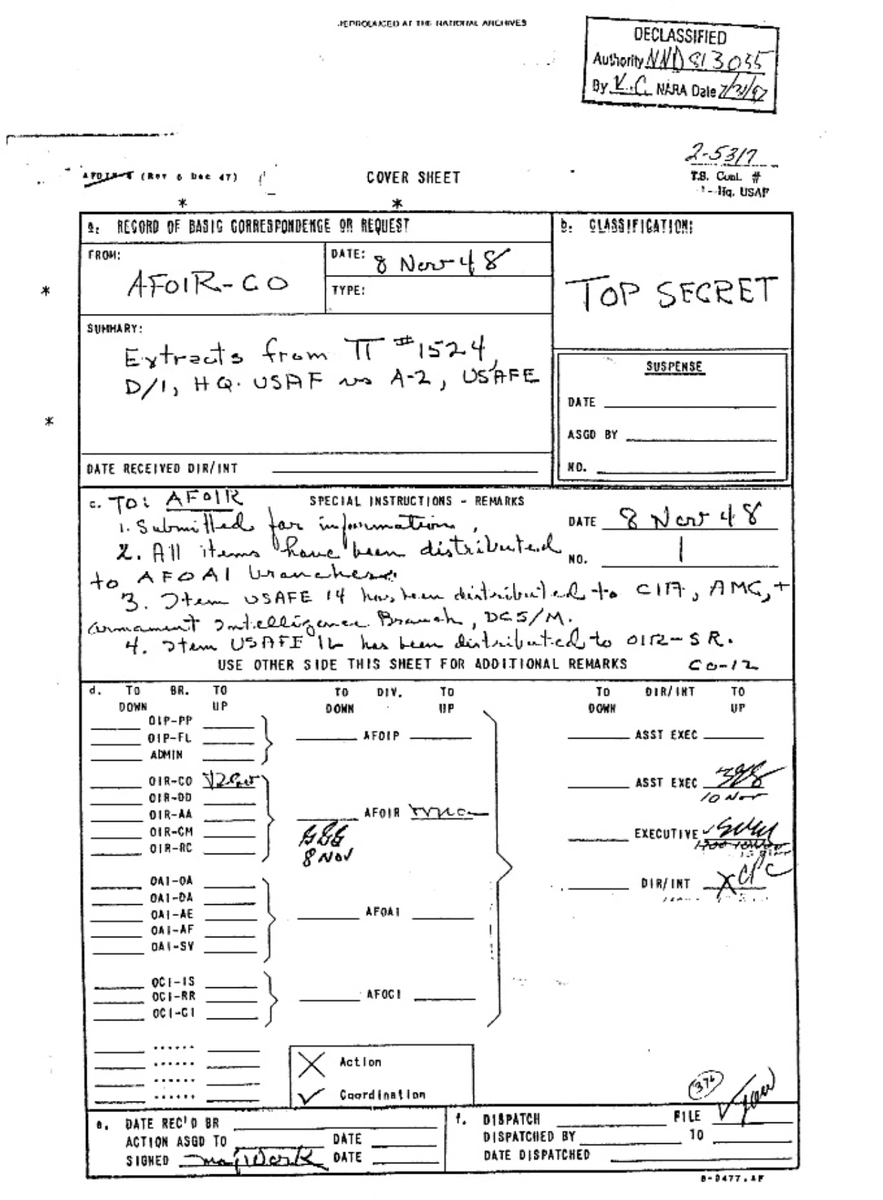 REPRODUCED AT THE NATIONAL ARCHIVES
DECLASSIFIED
Authority NND 813055
By K.C. NARA Date
2-5317
T.S. Cont. #
Hq. USAF
(Rev 6 Dec 47)
COVER SHEET
* *
a: RECORD OF BASIC CORRESPONDENCE OR REQUEST
b: CLASSIFICATION:
FROM: AFOIR-CO
DATE: 8 Nov 48
TYPE:
*
TOP SECRET
SUMMARY:
Extracts from TT #1524,
D/I, HQ. USAF vs A-2, USAFE
*
SUSPENSE
DATE
ASGD BY
NO.
DATE RECEIVED DIR/INT
c. TO: AFOIR SPECIAL INSTRUCTIONS - REMARKS
DATE 8 Nov 48
NO. 1
1. Submitted for information.
2. All items have been distributed
to AFOAI branches.
3. Item USAFE 14 has been distributed to CIA, AMC, +
Armament Intelligence Branch, DCS/M.
4. Item USAFE 16 has been distributed to OIR-SR.
USE OTHER SIDE THIS SHEET FOR ADDITIONAL REMARKS CO-12
d. TO BR. TO TO DIV. TO TO DIR/INT TO
DOWN UP DOWN UP DOWN UP
OIP-PP
OIP-FL AFOIP ASST EXEC
ADMIN
OIR-CO ASST EXEC
10 Nov
OIR-DD
OIR-AA AFOIR
OIR-CM EXECUTIVE
OIR-RC
8 Nov
OAI-OA DIR/INT X CPC
OAI-DA
OAI-AE AFOAI
OAI-AF
OAI-SV
OCI-IS
OCI-RR AFOCI
OCI-CI
......
...... X Action
......
...... ✓ Coordination
376
e. DATE REC'D BR
ACTION ASGD TO DATE
SIGNED DATE
f. DISPATCH FILE
DISPATCHED BY TO
DATE DISPATCHED
8-0477,AF